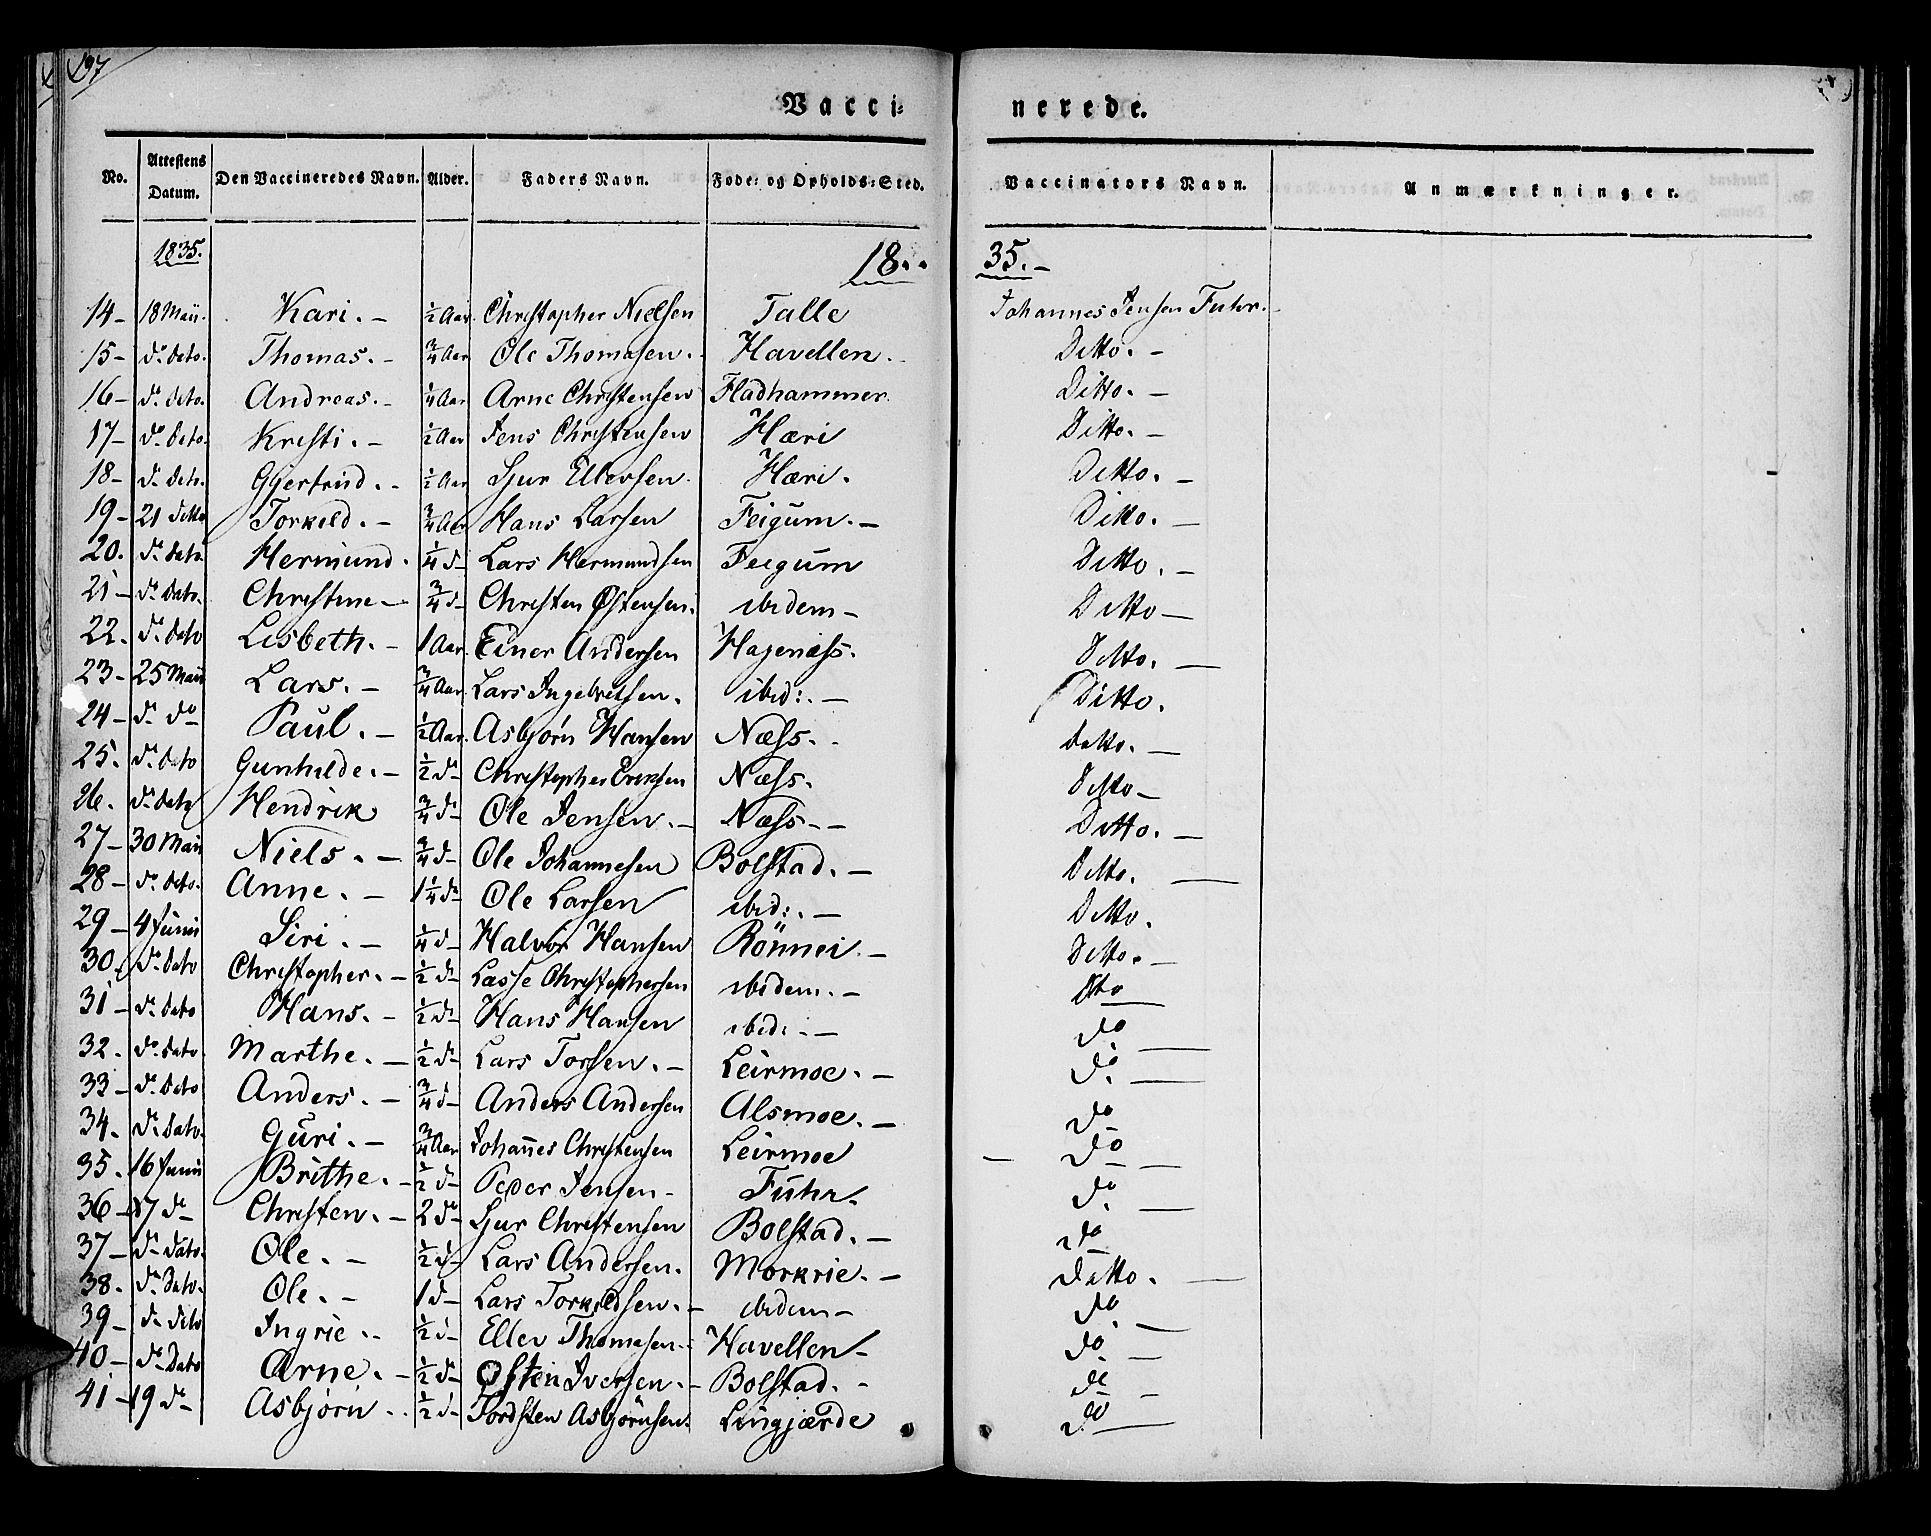 197
Vacci= nerede.
No. Attestens Datum. Den Vaccineredes Navn. Alder. Faders Navn. Føde= og Opholds=Sted. Vaccinators Navn. Anmærkninger.
1835. 18.. 35.-
14- 18 Maii. Kari.- ½ Aar. Christopher Nielsen Talle Johannes Jensen Fuhr.-
15- do. Dato. Thomas.- ¾ Aar Ole Thomasen. Havellen. Ditto.-
16- do. Dato. Andreas.- ¼ Aar. Arne Christensen Fladhammer. Ditto.-
17- do. Dato. Kristi.- ½ Aar Jens Christensen Hæri Ditto.-
18- do. Dato. Gjertrud.- ½ Aar Sjur Ellevsen. Hæri. Ditto.-
19- 21 Ditto Torkild.- ¾ Aar Hans Larsen Feigum.- Ditto.-
20. do. Dato. Hermund. ¼ do- Lars Hermundsen Feigum Ditto.-
21- do. Dato. Christine- ¾ d- Christen Østensen. ibidem- Ditto-
22. do. Dato Lisbeth.- 1 Aar. Einer Andersen Hagenæss. Ditto.-
23- 25 Maii Lars.- ¾ Aar. Lars Ingebretsen. ibid:.- Ditto.
24- do do Paul.- ½ Aar. Asbjørn Hansen Næss.. Datto.-
25. do. Dato Gunhilde.- ½ do- Christopher Erichsen Næss. Ditto-
26. do. Dato Hendrik ¾ d- Ole Jensen.- Næss.- Ditto.-
27- 30 Maii Niels.- ¾ d- Ole Johannesen Bolstad.- Ditto.-
28- do. Dato. Anne.- 1¼ do Ole Larsen ibid:.- Ditto.
29- 4 Junii Siri.- ¼ d- Halvor Hansen Rönnei.- Ditto.-
30. do. Dato Christopher.- ½ do Lasse Christophersen ibidem.- Dto
31- do. Dato Hans.- ½ do Hans Hansen ibid:.- do
32. do. Dato. Marthe.- ½ do Lars Torsen.- Leirmoe.- do.-
33- do. Dato Anders.- ¾ d- Anders Andersen Alsmoe.- do
34. do. Dato. Guri.- ¾ Aar Johannes Christensen Leirmoe do-
35. 16 Junii Brithe.- ½ d- Peder Jensen- Fuhr. - do.-
36- 17 do- Christen.- 2 do Sjur Christensen Bolstad.- do
37- do. Dato. Ole.- ½ d- Lars Andersen. Morkrie.- Datto.-
38. do. Dato. Ole.- 1 d- Lars Torkildsen.- ibidem- do.-
39- do Dito Ingrie.- ½ d- Ellev Thomasen. Havellen- do.-
40- do. Dato Arne.- ½ do- Østen Iversen.- Bolstad.- do-
41- 19 do- Asbjørn.. ½ d- Tordsten Asbjørnsen. Lingjærde do-